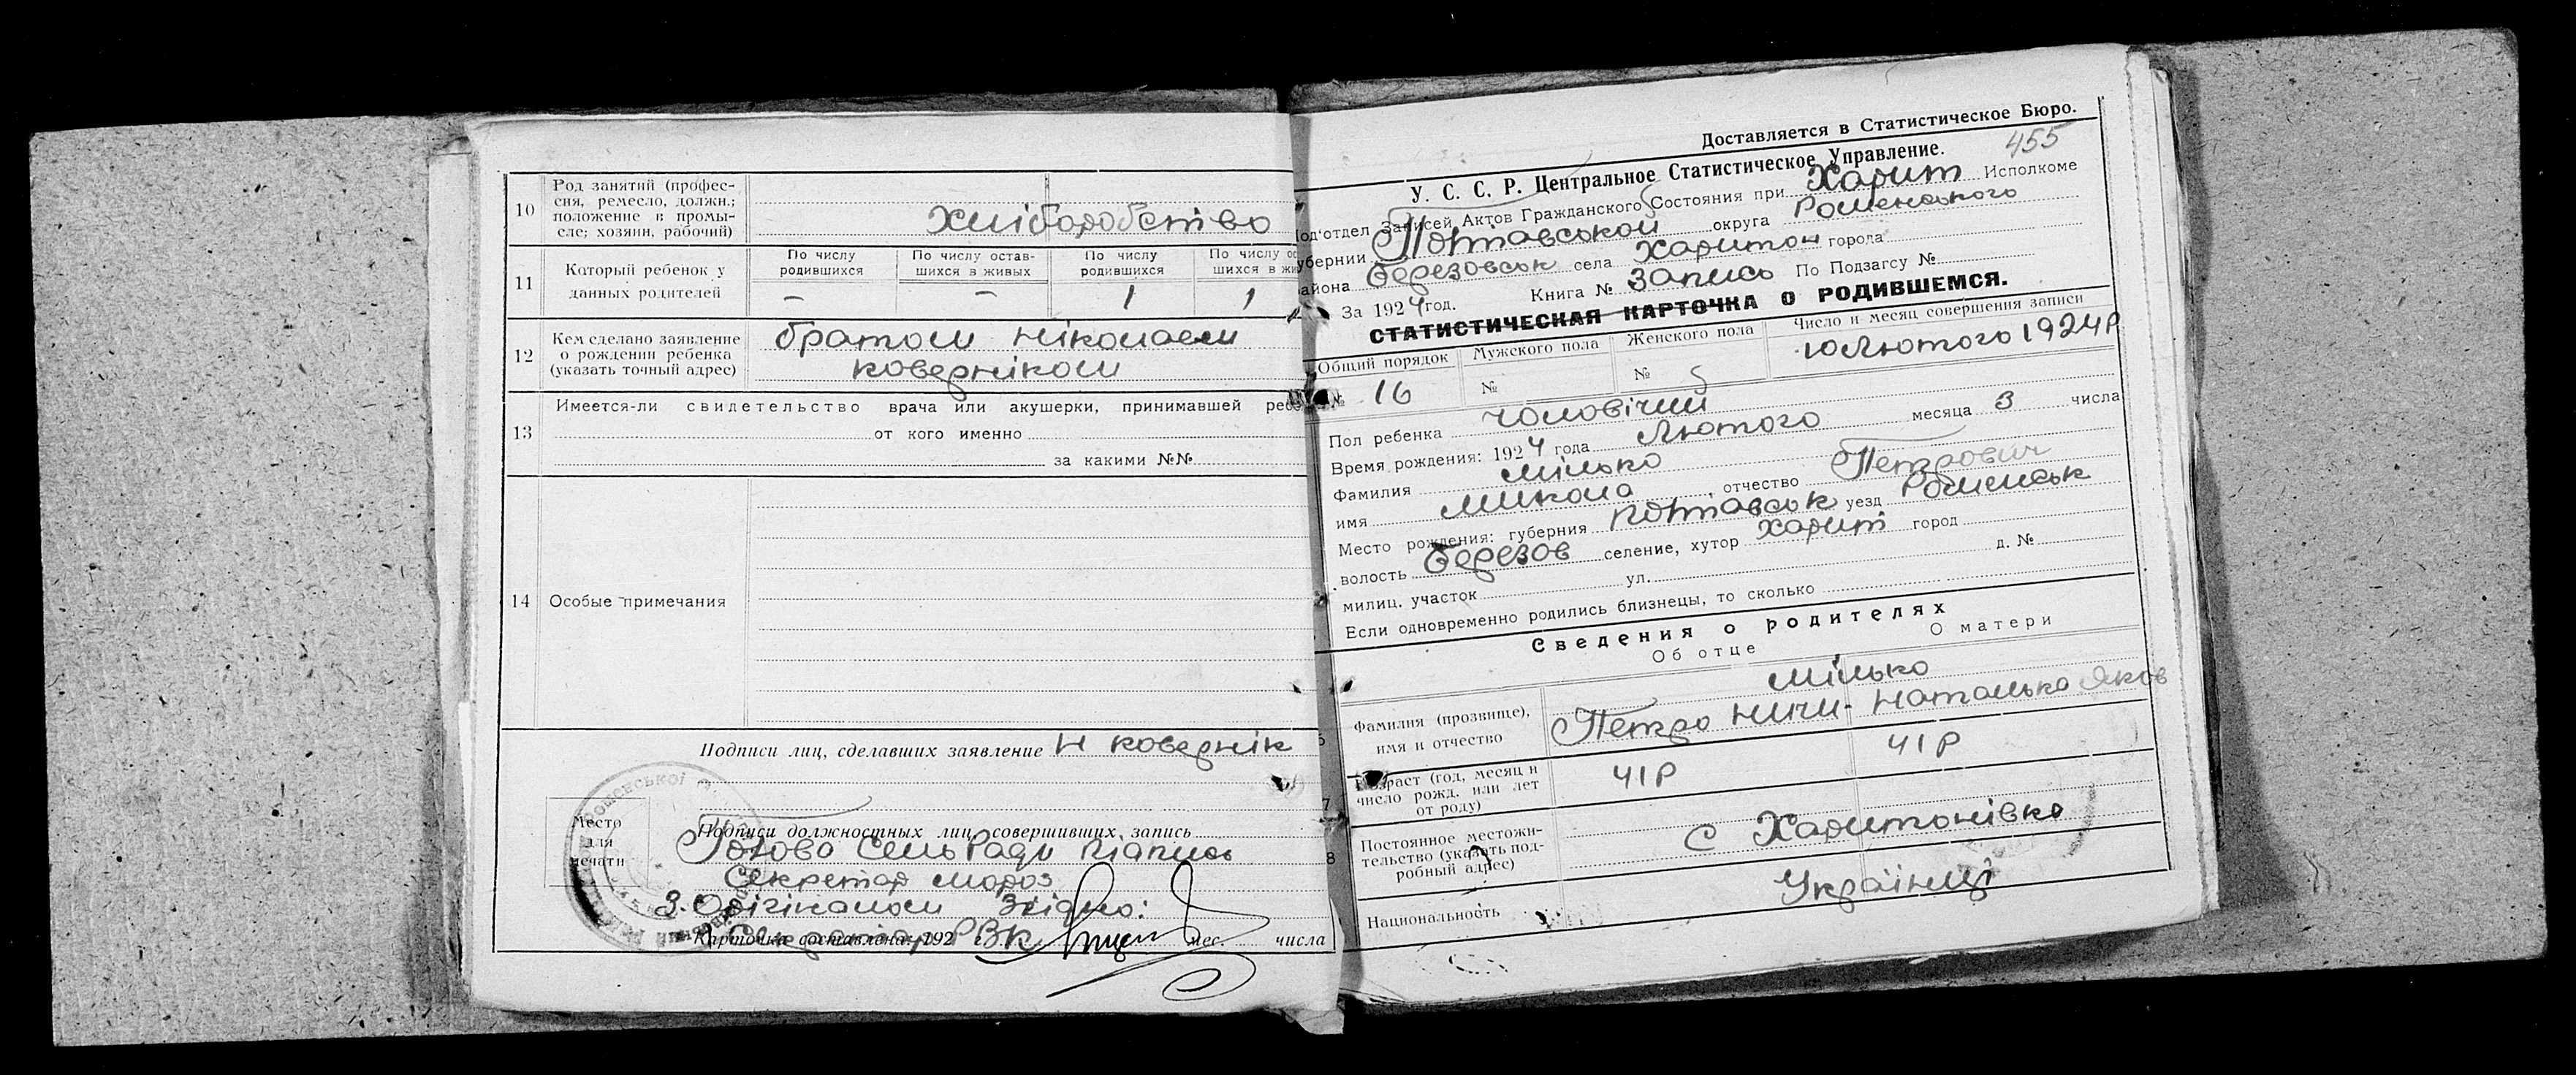 10 Род занятий (профес-
сия, ремесло, должн.;
положение в промы-
сле; хозяин, рабочий)
Хліборобство
11 Который ребенок у
данных родителей
По числу
родившихся
По числу остав-
шихся в живых
По числу
родившихся
По числу ос
шихся в жи
— — 1 1
12 Кем сделано заявление
о рождении ребенка
(указать точный адрес)
братом Ніколаем
Коверніком
13 Имеется-ли свидетельство врача или акушерки, принимавшей реб
от кого именно
за какими №№
14 Особые примечания
Подписи лиц, сделавших заявление Н Ковернік
Место
для
печати
Подписи должностных лиц, совершивших запись
Голова СельРади підпись
Секретар Мороз
З Оригіналом Згідно:
Карточка составлена: 192 г. мес. числа
РВК
Доставляется в Статистическое Бюро.
455
У. С. С. Р. Центральное Статистическое Управление.
Под'отдел Записей Актов Гражданского Состояния при Харит Исполкоме
губернии Полтавськой округа Роменського
района Березовськ села Харитон города
За 1924 год. Книга № Запись По Подзагсу №
СТАТИСТИЧЕСКАЯ КАРТОЧКА О РОДИВШЕМСЯ.
Общий порядок Мужского пола Женского пола Число и месяц совершения записи
№ 16 № № 10 Лютого 1924 р
Пол ребенка чоловічий
Время рождения: 1924 года Лютого месяца 3 числа
Фамилия Мілько
имя Микола, отчество Петрович
Место рождения: губерния Полтавськ уезд Роменськ
волость Березов селение, хутор Харит город
милиц. участок ул. д. №
Если одновременно родились близнецы, то сколько
Сведения о родителях
Об отце О матери
Мілько
6 Фамилия (прозвище),
имя и отчество
Петро Ничи- Наталька Яков
7 Возраст (год, месяц и
число рожд. или лет
от роду)
41 р 41 р
8 Постоянное местожи-
тельство (указать под-
робный адрес)
с Харитонівка
Национальность
Українці